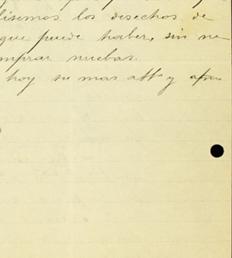 lisemos los desechos de
que puede haber, sin ne
mprar muchas.
hoy su mas atto y afmo